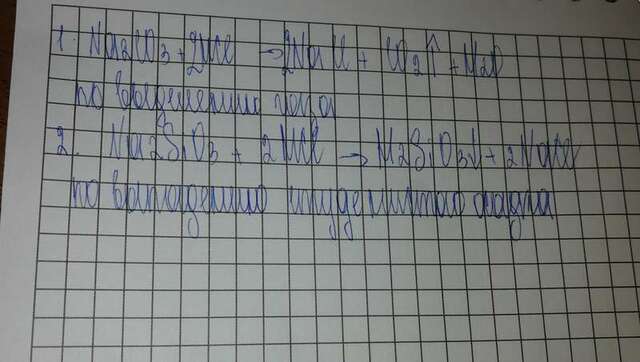 1. Na2CO3 + 2HCl → 2NaCl + CO2↑ + H2O
по выделению газа
2. Na2SiO3 + 2HCl → H2SiO3↓ + 2NaCl
по выпадению студенистого осадка